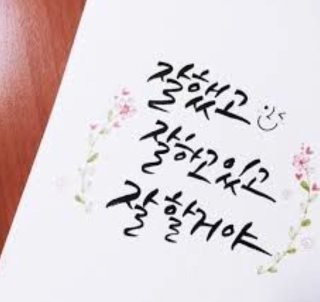 잘했고
잘하고있고
잘 할거야